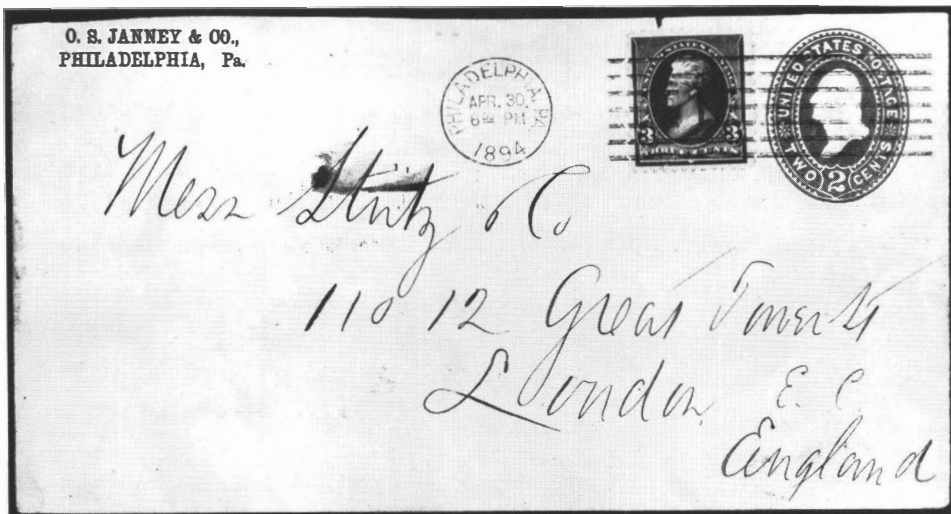 O. S. JANNEY & CO.,
PHILADELPHIA, Pa.
PHILADELPHIA, PA.
APR. 30
6 PM
1894
3 3
UNITED STATES POSTAGE
TWO 2 CENTS
Mess Stutz & Co
12 Great Tower St
London E. C.
England